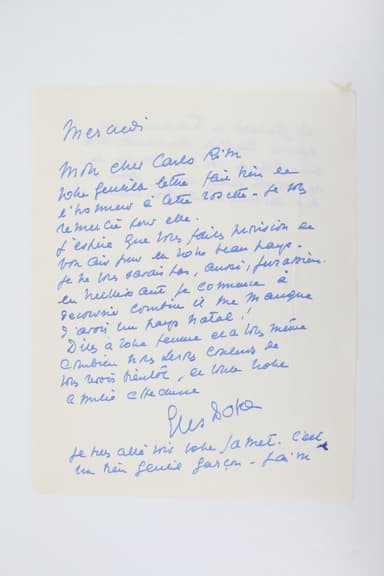 Mercredi
Mon cher Carlo Rim
Votre gentille lettre fait bien de
l'honneur à cette rosette - Je vous
remercie pour elle.
J'espère que vous faites provision de
bon air pur en votre beau pays -
Je ne vous savais pas, aussi, jurassien.
En vieillissant je commence à
découvrir combien il me manque
d'avoir un pays natal !
Dites à votre femme et à vous même
combien nous serons contents de
vous revoir bientôt, et toute notre
amitié
Je suis allé voir votre Jamet. C'est
un bien gentil garçon -